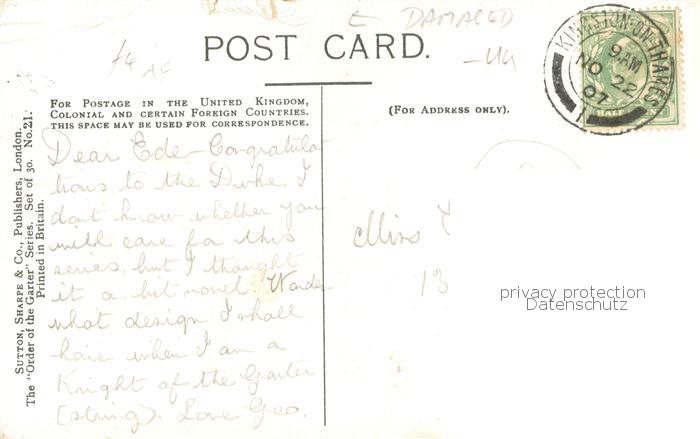 E DAMAGED
POST CARD.
FOR POSTAGE IN THE UNITED KINGDOM,
COLONIAL AND CERTAIN FOREIGN COUNTRIES.
THIS SPACE MAY BE USED FOR CORRESPONDENCE.
(FOR ADDRESS ONLY).
KINGSTON-ON-THAMES
9 AM
NO 22
07
1
HALF
SUTTON, SHARPE & CO., Publishers, London.
The "Order of the Garter" Series. Set of 30. No. 21.
Printed in Britain.
Dear Ede - Congratula
tions to the Duke. I
dont know whether you
will care for this
series, but I thought
it a bit novel. Wonder
what design I shall
have when I am a
Knight of the Garter
(string). Love Geo.
Miss
13
privacy protection
Datenschutz